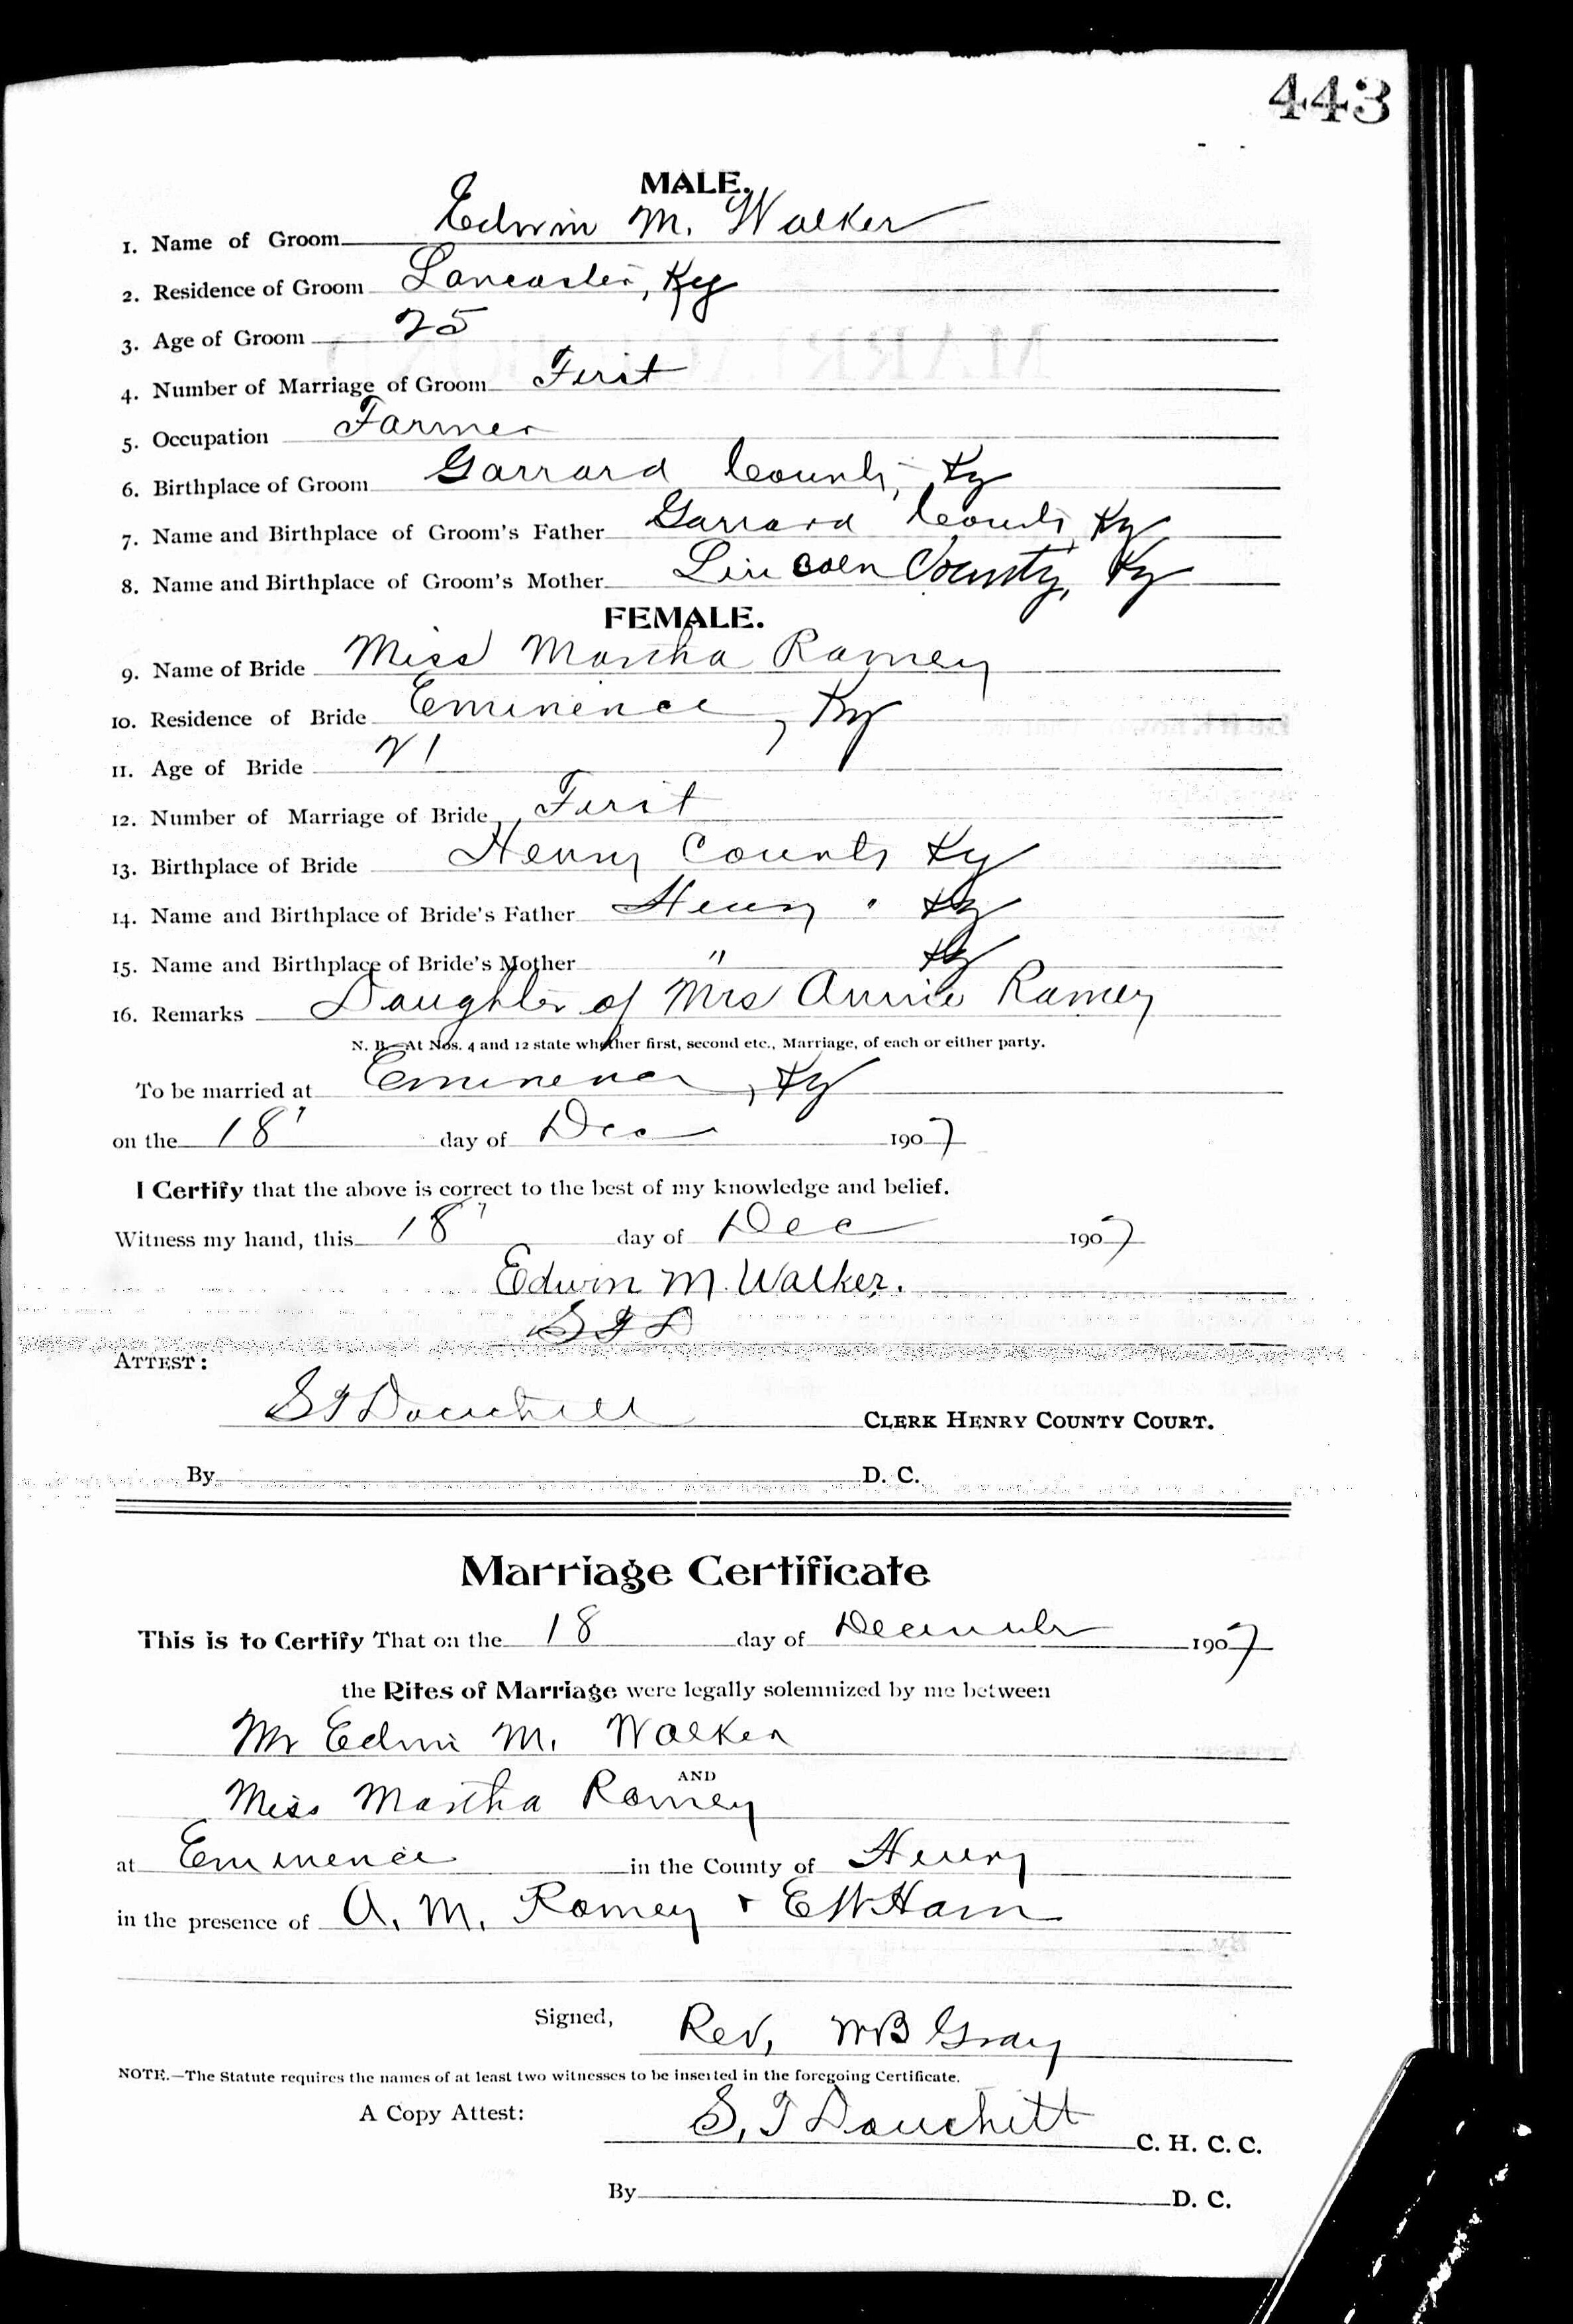 443
MALE.
1. Name of Groom Edwin M. Walker
2. Residence of Groom Lancaster, Ky
3. Age of Groom 25
4. Number of Marriage of Groom First
5. Occupation Farmer
6. Birthplace of Groom Garrard County, Ky
7. Name and Birthplace of Groom's Father Garrard County Ky
8. Name and Birthplace of Groom's Mother Lincoln County, Ky
FEMALE.
9. Name of Bride Miss Martha Ramey
10. Residence of Bride Eminence, Ky
11. Age of Bride 21
12. Number of Marriage of Bride First
13. Birthplace of Bride Henry County Ky
14. Name and Birthplace of Bride's Father Henry " Ky
15. Name and Birthplace of Bride's Mother " Ky
16. Remarks Daughter of Mrs Annie Ramey
N. B.—At Nos. 4 and 12 state whether first, second etc., Marriage, of each or either party.
To be married at Eminence, Ky
on the 18' day of Dec 1907
I Certify that the above is correct to the best of my knowledge and belief.
Witness my hand, this 18' day of Dec 1907
Edwin M. Walker.
ATTEST:
CLERK HENRY COUNTY COURT.
By D. C.
Marriage Certificate
This is to Certify That on the 18 day of December 1907
the Rites of Marriage were legally solemnized by me between
Mr Edwin M. Walker
AND
Miss Martha Ramey
at Eminence in the County of Henry
in the presence of A. M. Ramey + E W Ham
Signed, Rev, WB Gray
NOTE.—The Statute requires the names of at least two witnesses to be inserted in the foregoing Certificate.
A Copy Attest: S, T Douthitt C. H. C. C.
By D. C.